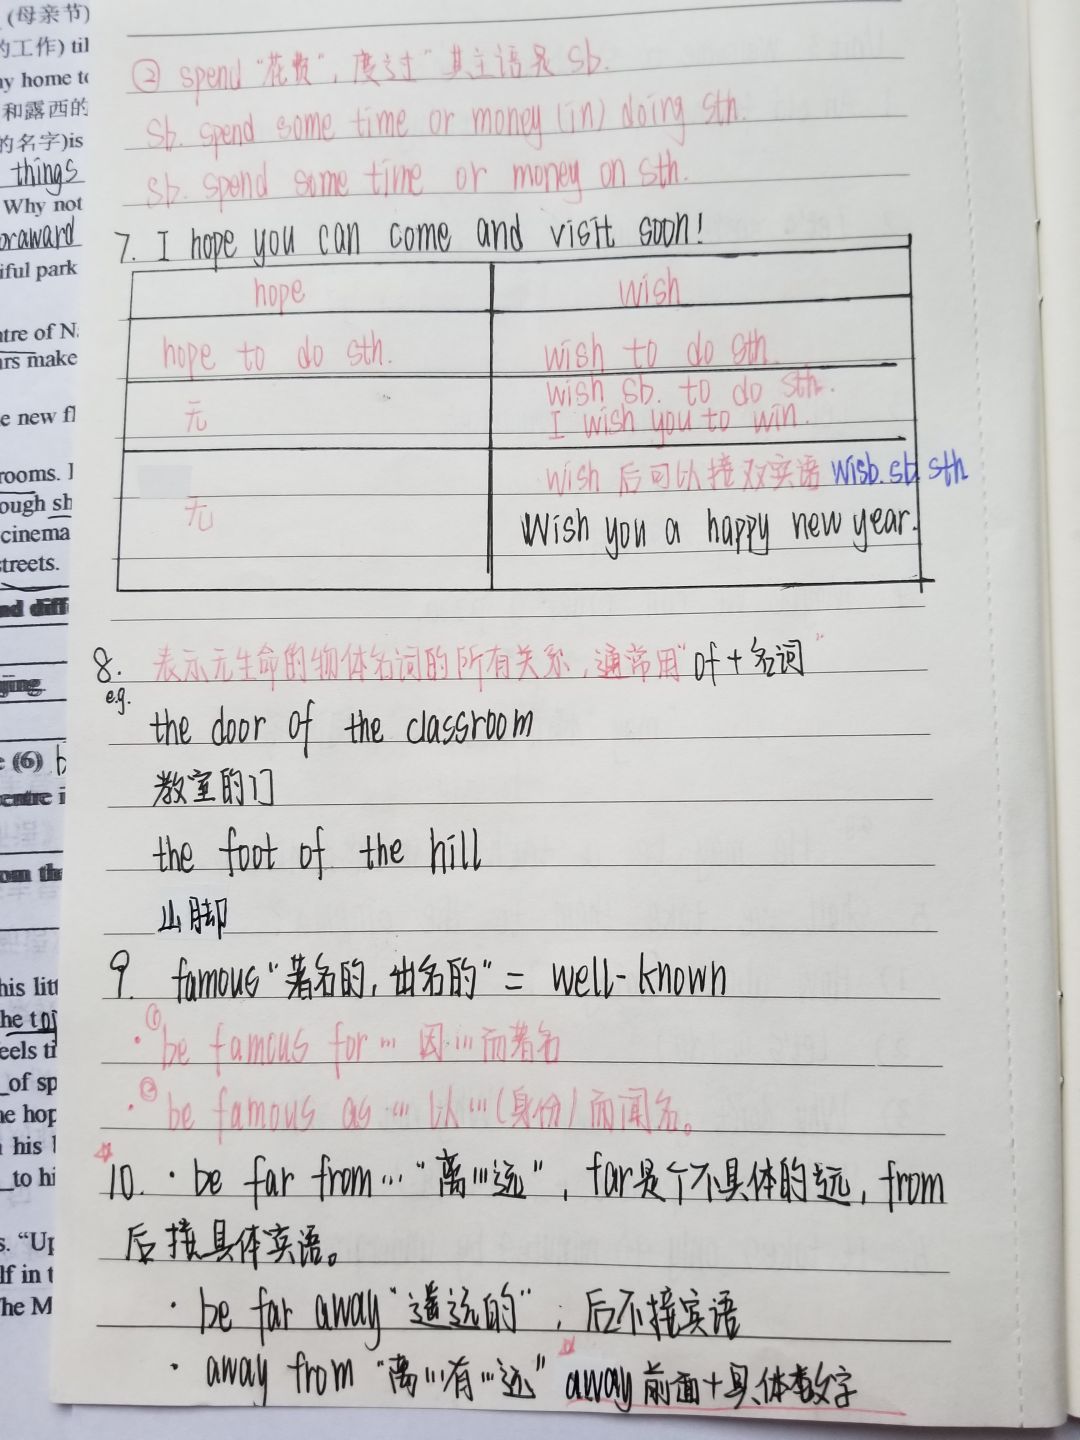 (母亲节)
的工作) til
ny home to
和露西的
的名字)is
things
Why not
oraward
iful park
ntre of N
ars make
e new fl
rooms. I
ough sh
cinema
streets.
nd diff
ging.
e (6) b
centre i
om the
his litt
he top
eels ti
_of sp
ne hop
his l
_to hi
s. “Up
lf in t
The M
② spend “花费”, 度过” 其主语是 sb.
sb. spend some time or money (in) doing sth.
sb. spend some time or money on sth.
7. I hope you can come and visit soon!
hope wish
hope to do sth. wish to do sth.
无 wish sb. to do sth.
I wish you to win.
wish 后可以接双宾语 wisb. sb sth
无 Wish you a happy new year.
8. 表示无生命的物体名词的所有关系, 通常用“of + 名词”
e.g.
the door of the classroom
教室的门
the foot of the hill
山脚
9. famous “著名的, 出名的” = well-known
·① be famous for … 因…而著名
·② be famous as … 以…(身份)而闻名。
☆
10. · be far from… “离…远”, far是个不具体的远, from
后接具体宾语。
· be far away “遥远的”; 后不接宾语
· away from “离…有…远” ☆ away前面+具体数字